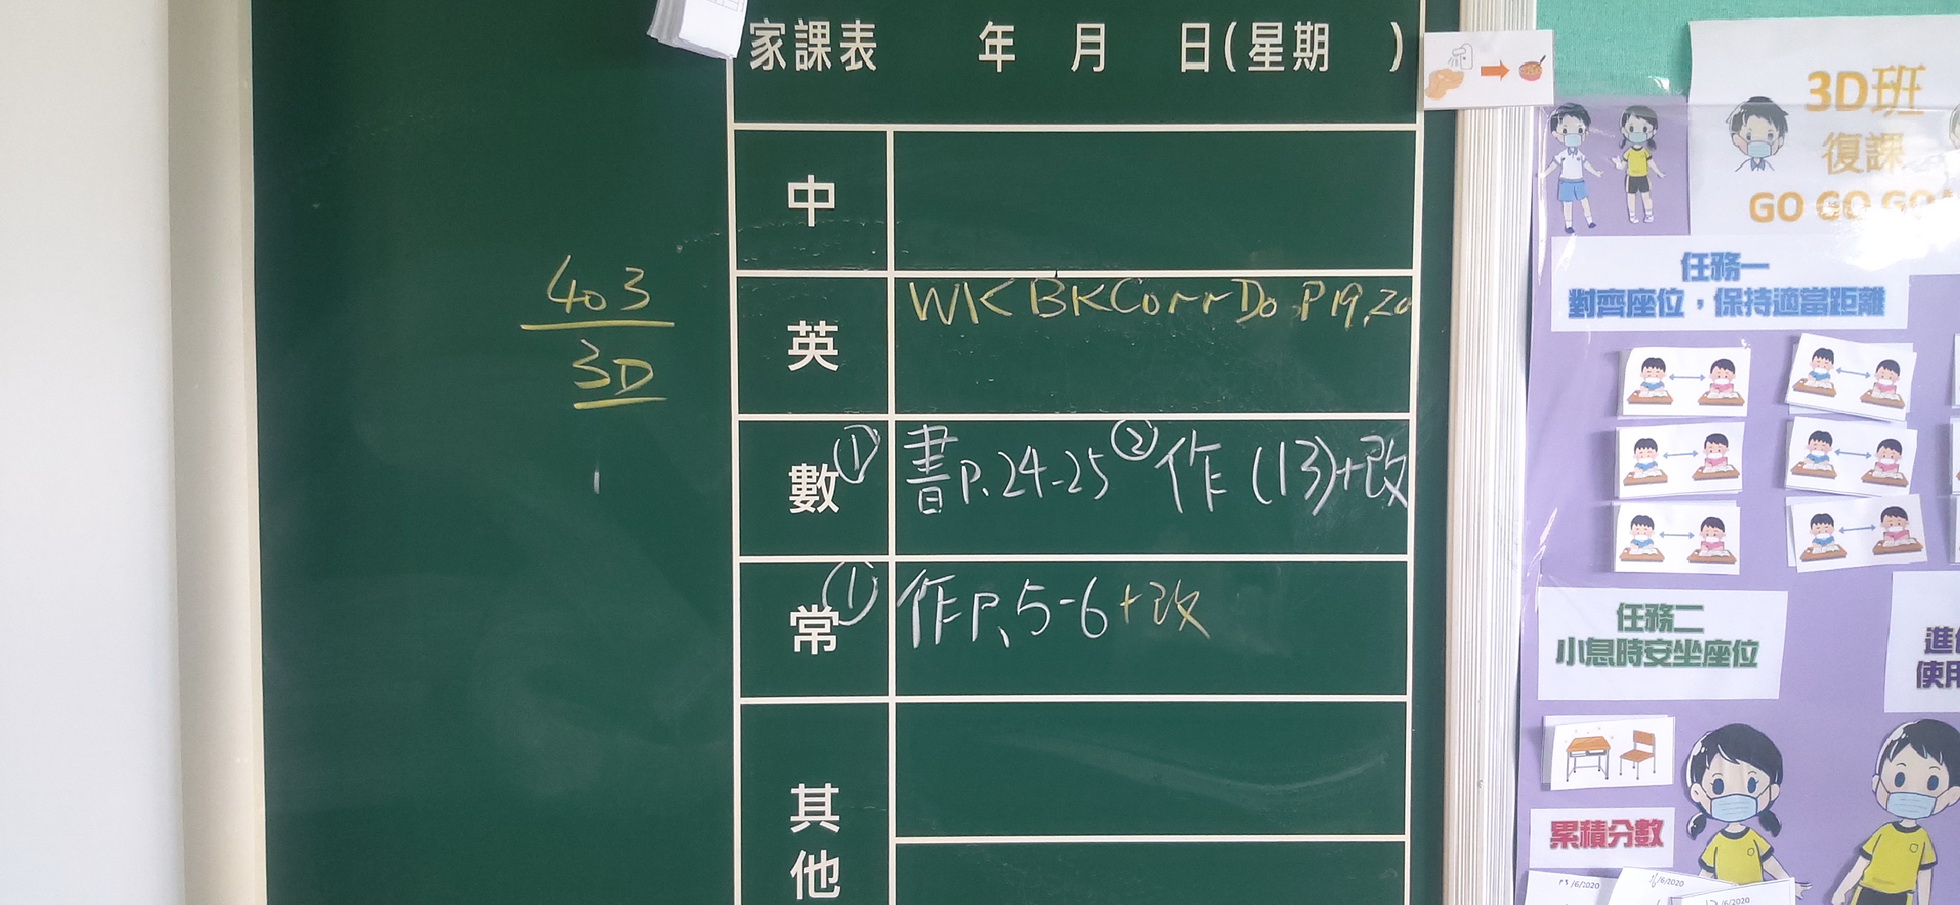 家課表 年 月 日(星期 )
中
英 WK BK Corr Do P 19, 20
數 ① 書 P. 24-25 ② 作 (13)+改
常 ① 作 P. 5-6 +改
其他
403
3D
3D班
復課
GO GO GO
任務一
對齊座位,保持適當距離
任務二
小息時安坐座位
使用
累積分數
/6/2020
/6/2020
/6/2020